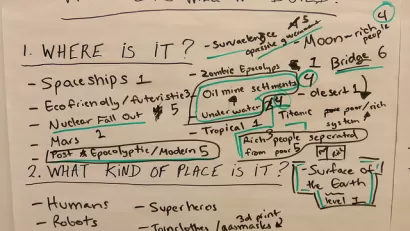 1. WHERE IS IT?
- Spaceships 1
- Ecofriendly/futuristic 3
- Nuclear Fall Out 5
- Mars 2
- Post Apocolyptic/Modern 5
- Surveylence 5
opresive government
- Zombie Epocolyps
Oil mine settlments 4
Underwater 4
- Tropical 1
Rich people seperated
from poor 5
4
- Moon ~ rich people
1 Bridge 6
- desert 1
Titanic poor/rich
system
- Surface of
the Earth
level 1
2. WHAT KIND OF PLACE IS IT?
- Humans
- Robots
- Superheros
3d print
/gasmasks 2